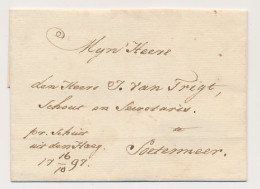 Myn Heere
den Heere J. van Trigt,
Schout en Secretaris.
te
pr. Schuit
uit den Haag. Soetermeer.
17 16/10 97.